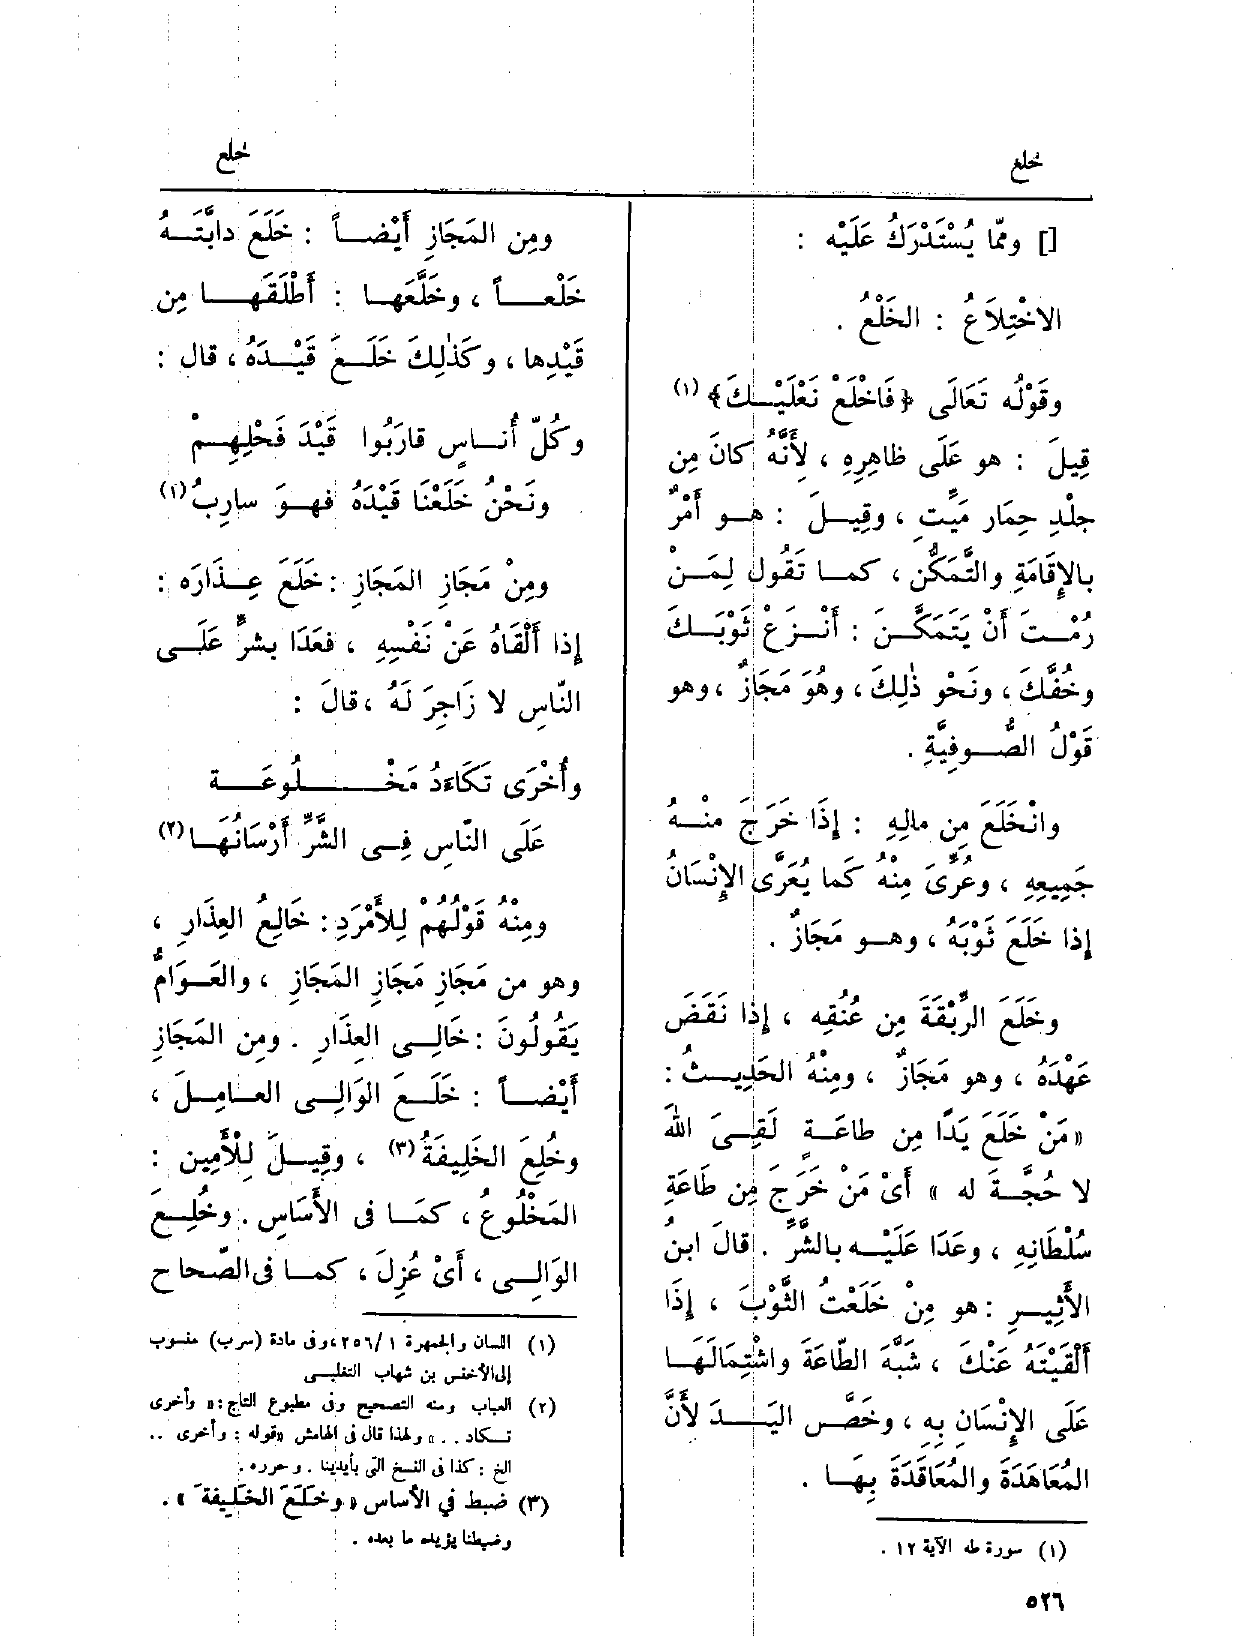 خلع
خلع
[] ومِمّا يُسْتَدْرَكُ عَلَيْه :
الاخْتِلَاعُ : الخَلْعُ .
وقَوْلُه تَعَالَى ﴿فَاخْلَعْ نَعْلَيْـكَ﴾ (١)
قِيلَ : هو عَلَى ظاهِرِهِ ، لِأَنَّهُ كانَ مِن
جِلْدِ حِمَار مَيِّتٍ ، وقِيـلَ : هـو أَمْرٌ
بالإِقَامَةِ والتَّمَكُّن ، كمـا تَقُول لِمَـنْ
رُمْـتَ أَنْ يَتَمَكَّـنَ : أَنْـزِعْ ثَوْبَـكَ
وخُفَّكَ ، ونَحْو ذٰلِكَ ، وهُوَ مَجَازٌ ، وهو
قَوْلُ الصُّـوفِيَّةِ .
وانْخَلَعَ مِن مالِهِ : إِذَا خَرَجَ منْـهُ
جَمِيعِهِ ، وعُرِّىَ مِنْهُ كَما يُعَرَّى الإِنْسَانُ
إذا خَلَعَ ثَوْبَهُ ، وهـو مَجَازٌ .
وخَلَعَ الرِّبْقَةَ مِن عُنُقِه ، إِذَا نَقَضَ
عَهْدَهُ ، وهو مَجَازٌ ، ومِنْهُ الحَدِيـثُ :
« مَنْ خَلَعَ يَدًا مِن طاعَـةٍ لَقِـىَ اللهَ
لا حُجَّـةَ له » أَىْ مَنْ خَرَجَ مِن طَاعَةِ
سُلْطَانِهِ ، وعَدَا عَلَيْـه بالشَّرِّ . قالَ ابنُ
الأَثِيـرِ : هو مِنْ خَلَعْتُ الثَّوْبَ ، إِذَا
أَلْقَيْتَهُ عَنْكَ ، شَبَّهَ الطَّاعَةَ واشْتِمَالَهَـا
عَلَى الإِنْسَانِ بِهِ ، وخَصَّ اليَـدَ لأَنَّ
المُعَاهَدَةَ والمُعَاقَدَةَ بِهَـا .
(١) سورة طه الآية ١٢ .
ومِن المَجَازِ أَيْضـاً : خَلَعَ دابَّتَـهُ
خَلْعـاً ، وخَلَّعَها : أَطْلَقَهـا مِن
قَيْدِها ، وكَذٰلِكَ خَلَـعَ قَيْـدَهُ ، قال :
وكُلّ أُنـاسٍ قارَبُوا قَيْدَ فَحْلِهِـمْ
ونَحْنُ خَلَعْنَا قَيْدَهُ فهـوَ سارِبُ (١)
ومِنْ مَجَازِ المَجَازِ : خَلَعَ عِـذَارَه :
إذا أَلْقَاهُ عَنْ نَفْسِهِ ، فعَدَا بشرٍّ عَلَـى
النّاسِ لا زَاجِرَ لَهُ ، قالَ :
وأُخْرَى تَكَاءَدُ مَخْـلُوعَـةً
عَلَى النّاسِ فِـى الشَّرِّ أَرْسَانُهَـا (٢)
ومِنْهُ قَوْلُهُمْ لِلأَمْرَدِ : خَالِعُ العِذَارِ ،
وهو من مَجَازِ مَجَازِ المَجَازِ ، والعَـوَامُّ
يَقُولُونَ : خَالِـى العِذَارِ . ومِن المَجَازِ
أَيْضـاً : خَلَـعَ الوَالِـى العـامِـلَ ،
وخُلِعَ الخَلِيفَةُ (٣) ، وقِيـلَ لِلْأَمِين :
المَخْلُوعُ ، كمَـا فى الأَسَاسِ . وخُلِـعَ
الوَالِـى ، أَىْ عُزِلَ ، كمـا فى الصّحاح
(١) اللسان والجمهرة ٢٥٦/١ ، وفى مادة (سرب) منسوب
إلى الأخنس بن شهاب التغلبـى
(٢) العباب ومنه التصحيح وفى مطبوع التاج : « وأخرى
تـكاد . . » ولهذا قال فى الهامش «قوله : وأخرى ..
الخ : كذا فى النسخ التى بأيدينا . وحرره .
(٣) ضبط في الأساس « وخَلَعَ الخَليفةَ » .
وضبطنا يؤيده ما بعده .
٥٢٦